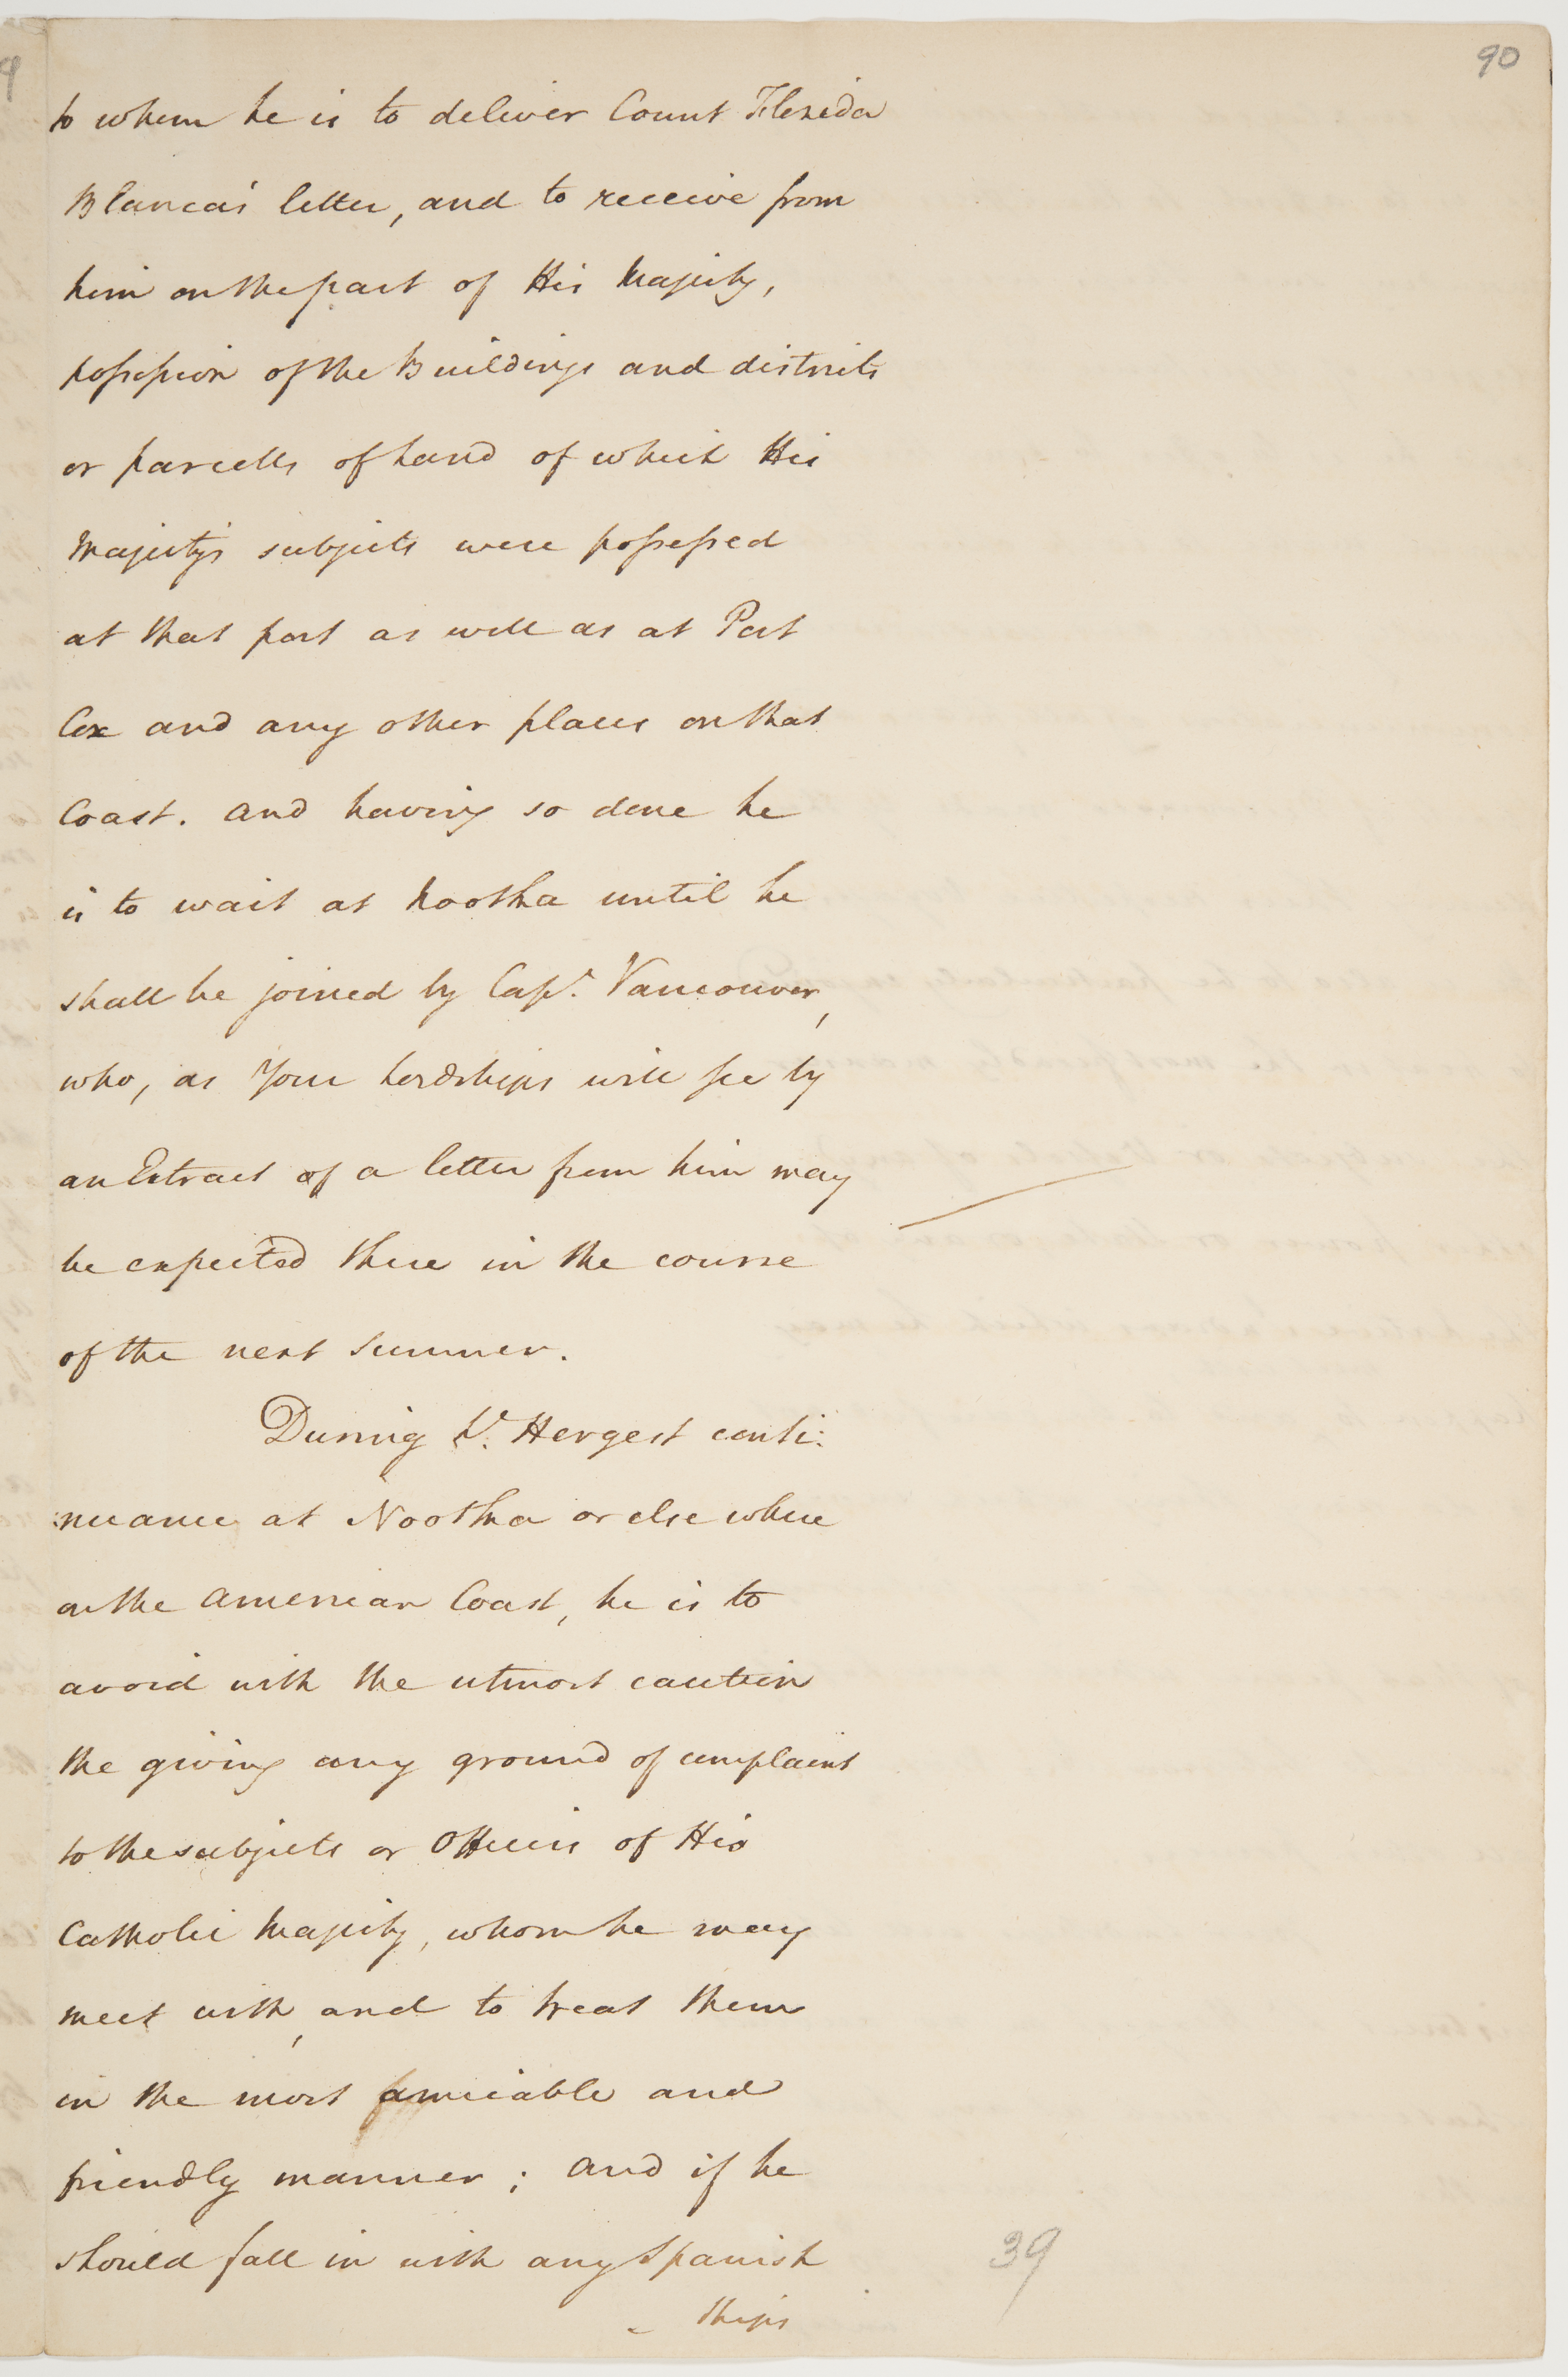 90
to whom he is to deliver Count Florida
Blanca's letter, and to receive from
him on the part of His Majesty,
possession of the Buildings and districts
or parcells of Land of which His
Majesty's subjects were possessed
at that port as well as at Port
Cox and any other places on that
Coast. and having so done he
is to wait at Nootka until he
shall be joined by Capt. Vancouver,
who, as Your Lordships will see by
an Extract of a letter from him may
be expected there in the course
of the next Summer.
During Lt. Hergest conti:
:nuance at Nootka or else where
on the American Coast, he is to
avoid with the utmost caution
the giving any ground of complaint
to the subjects or Officers of His
Catholic Majesty, whom he may
meet with, and to treat them
in the most amicable and
friendly manner; and if he
should fall in with any Spanish
Ships
39